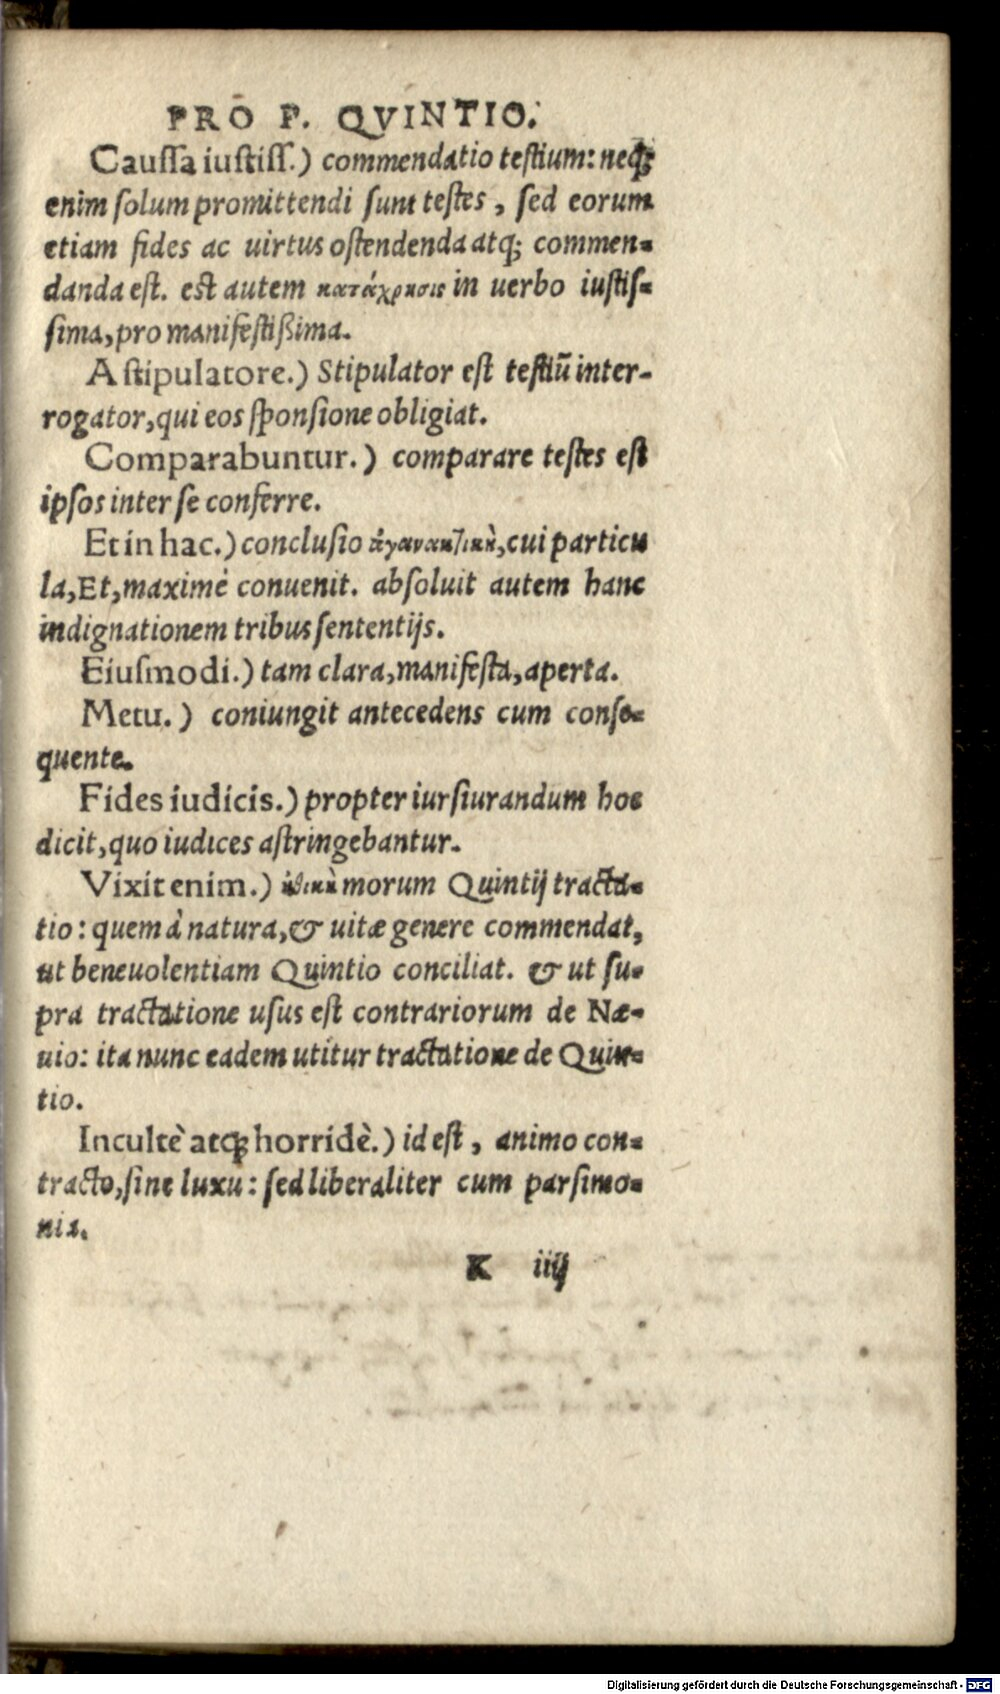 PRO P. QVINTIO.
Caussa iustiss.) commendatio testium: neq;
enim solum promittendi sunt testes, sed eorum
etiam fides ac uirtus ostendenda atq; commen-
danda est. est autem κατάχρησις in uerbo iustis-
sima, pro manifestißima.
Astipulatore.) Stipulator est testiũ inter-
rogator, qui eos sponsione obligiat.
Comparabuntur.) comparare testes est
ipsos inter se conferre.
Et in hac.) conclusio ἀγανακτικὴ, cui particu
la, Et, maximè conuenit. absoluit autem hanc
indignationem tribus sententijs.
Eiusmodi.) tam clara, manifesta, aperta.
Metu.) coniungit antecedens cum conse-
quente.
Fides iudicis.) propter iursiurandum hoc
dicit, quo iudices astringebantur.
Vixit enim.) ἠθικὴ morum Quintij tracta-
tio: quem à natura, & uitæ genere commendat,
ut beneuolentiam Quintio conciliat. & ut su-
pra tractatione usus est contrariorum de Næ-
uio: ita nunc eadem utitur tractatione de Quin-
tio.
Incultè atq; horridè.) id est, animo con-
tracto, sine luxu: sed liberaliter cum parsimo-
nia.
K iiij
Digitalisierung gefördert durch die Deutsche Forschungsgemeinschaft - DFG